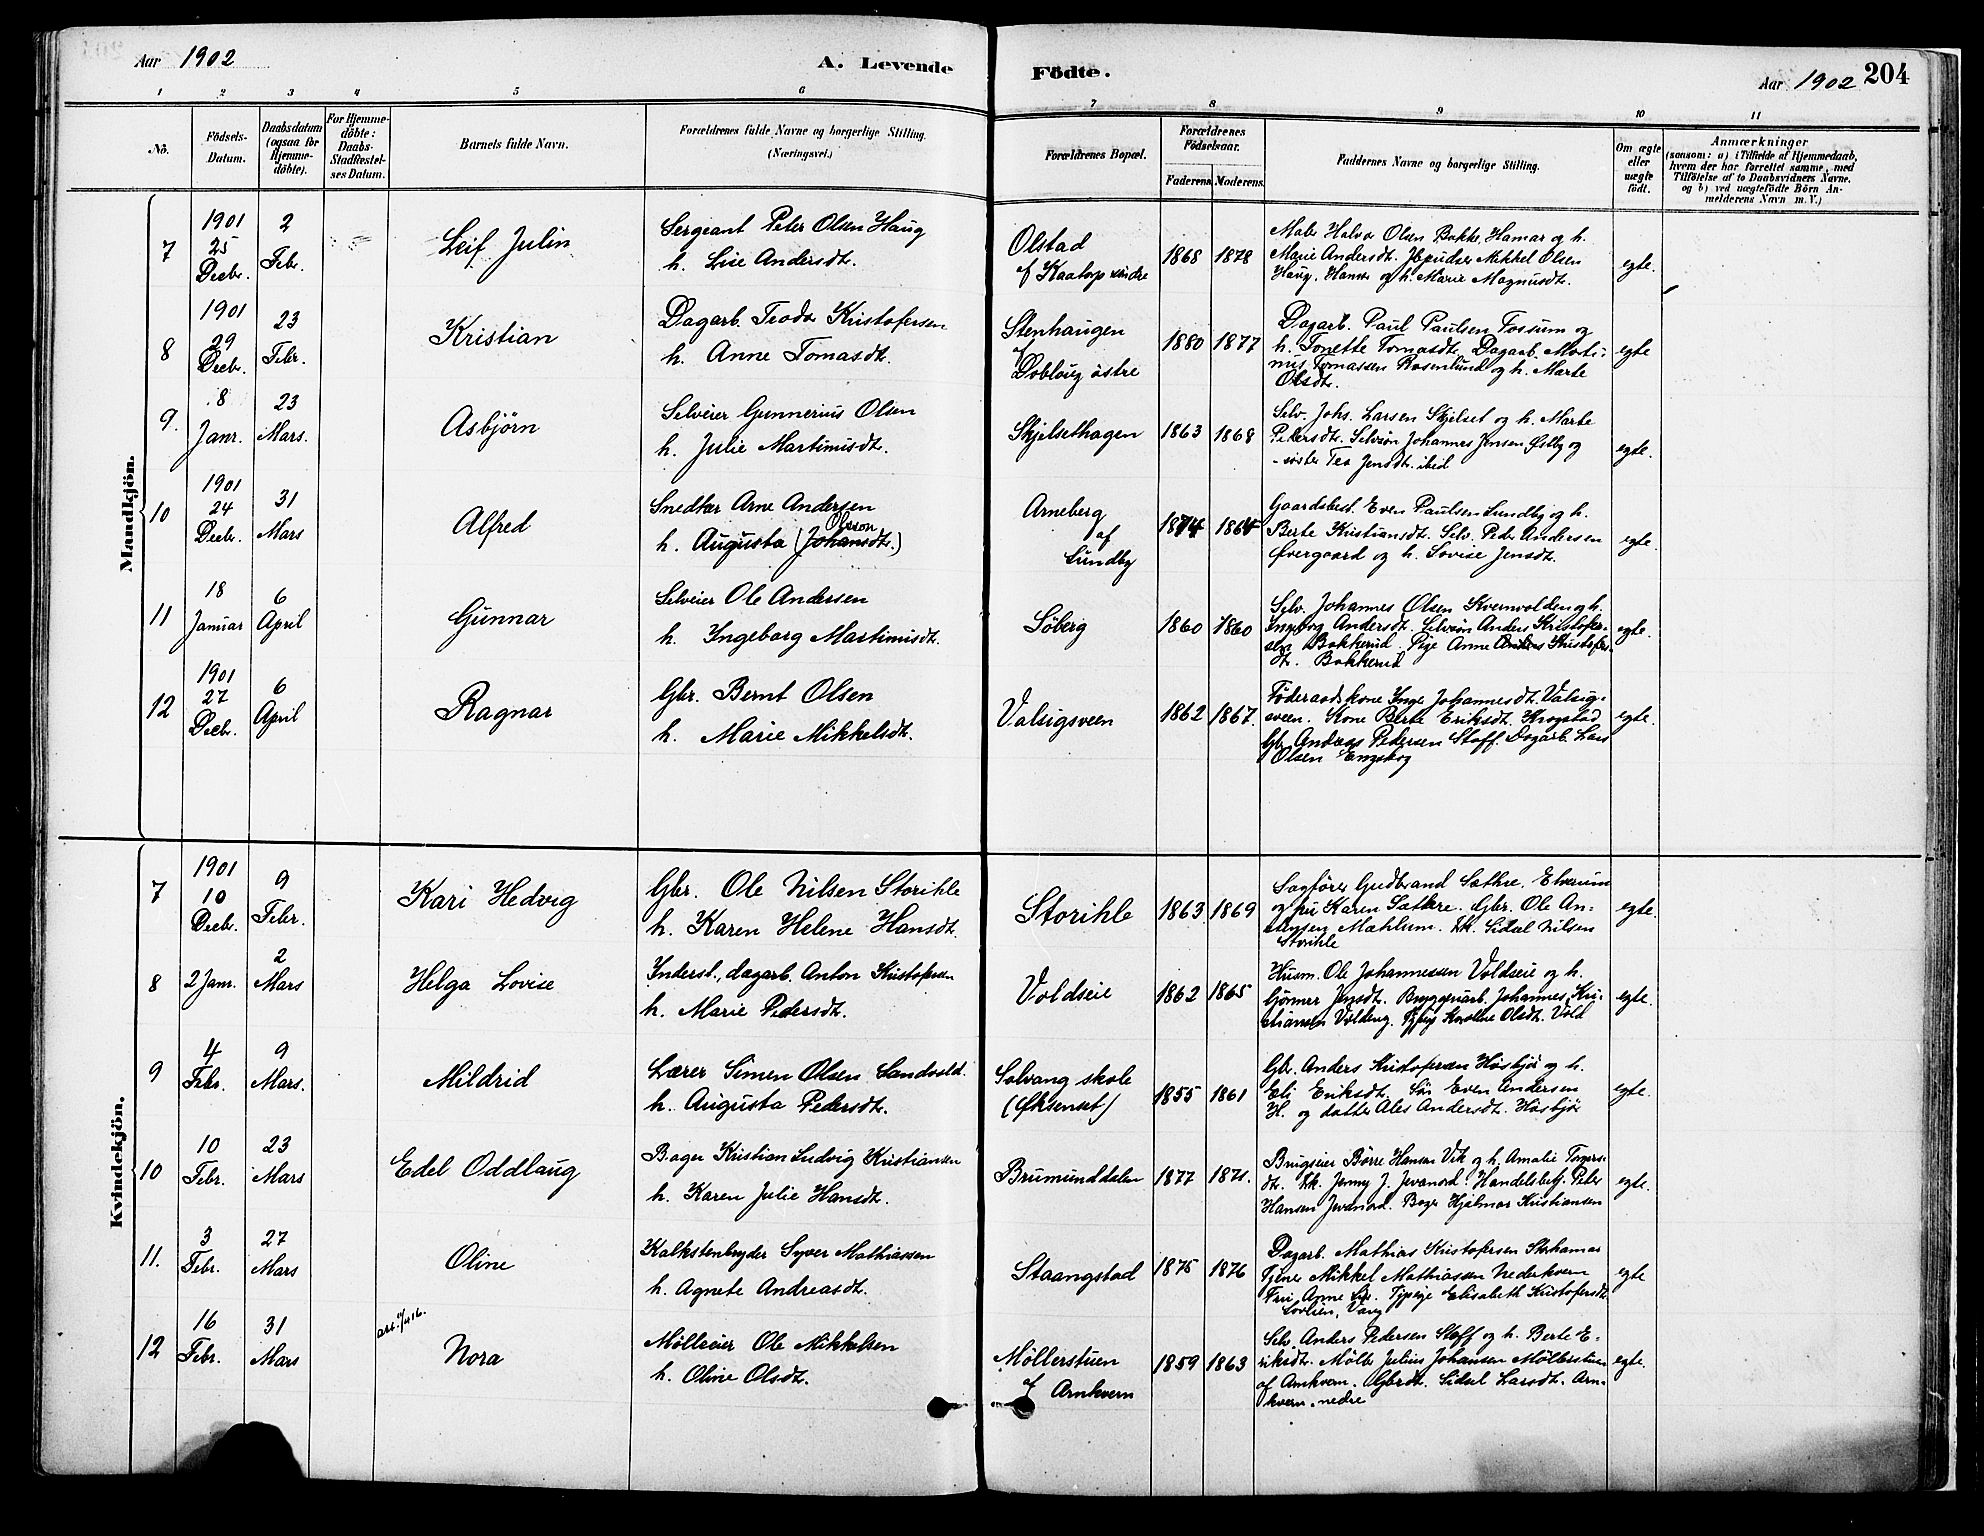 Aar 1902
A. Levende
Födte.
Aar 1902
204
1 2 3 4 5 6 7 8 9 10 11
No.
Födsels-
Datum.
Daabsdatum
(ogsaa for
Hjemme-
döbte).
For Hjemme-
döbte:
Daabs-
Stadfæstel-
ses Datum.
Barnets fulde Navn.
Forældrenes fulde Navne og borgerlige Stilling.
(Næringsvei.)
Forældrenes Bopæl.
Forældrenes
Födselsaar.
Faderens. Moderens.
Faddernes Navne og borgerlige Stilling.
Om ægte
eller
uægte
födt.
Anmærkninger
(saasom: a) i Tilfælde af Hjemmedaab,
hvem der har forrettet samme, med
Tilföielse af to Daabsvidners Navne.
og b) ved uægtefödte Börn An-
melderens Navn m. V.)
Mandkjön.
7
1901
25
Decbr.
2
Febr.
Leif Julin
Sergeant Peter Olsen Haug
h. Lise Andersdt.
Olstad
af Kaatorp søndre
1868 1878
Maler Halvor Olsen Bakke, Hamar og h.
Marie Andersdt. Mikkel Olsen
Haug, Hamar og h. Marie Magnusdt.
egte.
8
1901
29
Decbr.
23
Febr.
Kristian
Dagarb. Teodor Kristofersen
h. Anne Tomasdt.
Stenhaugen
af
Dobloug østre
1880 1877
Dagarb. Paul Paulsen Fossum og
h. Tonette Tomasdt. Dagarb. Marti-
nus Tomassen Rosenlund og h. Marte
Olsdt.
egte
9.
8
Janr.
23
Mars.
Asbjörn
Selveier Gunnerius Olsen
h. Julie Martinusdt.
Skjelsethagen
1863 1868
Selv. Johs. Larsen Skjelset og h. Marte
Pedersdt. Selvsøn Johannes Jensen Østby og
søster Tea Jensdt. ibid
egte.
10
1901
24
Decbr.
31
Mars
Alfred
Snedker Arne Andersen
Olsson
h. Augusta (Johansdt.)
Arneberg
af
Lundby
1874 1865
Gaardsbest. Even Paulsen Lundby og h.
Berte Kristiansdt. Selv. Peder Andersen
Øvergaard og h. Lovise Jensdt.
egte.
11
18
Januar
6
April
Gunnar
Selveier Ole Andersen
h. Ingeborg Martinusdt.
Söberg
1860 1860
Selv. Johannes Olsen Kvernvolden og h.
Ingeborg Andersdt. Selvsøn Anders Kristofer-
sen Bakkerud. Pige Anne Kristofers-
dt. Bakkerud
egte.
12
1901
27
Decbr.
6
April
Ragnar
Gbr. Bernt Olsen
h. Marie Mikkelsdt.
Valsigsveen
1862 1867.
Føderaadskone Inge Johannesdt. Valsig-
sveen. Kone Berte Eriksdt. Krogstad
Gbr. Andreas Pedersen Staff. Dagarb. Lars
Olsen Engskog
egte.
Kvindekjön.
7
1901
10
Decbr.
9
Febr.
Kari Hedvig
Gbr. Ole Nilsen Storihle
h. Karen Helene Hansdt.
Storihle
1863 1869
Sagfører Gudbrand Sæthre, Elverum
og fru Karen Sæthre. Gbr. Ole An-
dersen Mæhlum. Pk. Sidsel Nilsen
Storihle
egte.
8
2 Janr.
2
Mars
Helga Lovise
Inderst, dagarb. Anton Kristofersen
h. Marie Pedersdt.
Voldseie
1862 1865
Husm. Ole Johannessen Voldseie og h.
Gjørner Jensdt. Bryggeriarb. Johannes Kri-
stiansen Voldeng. Tjpige Karoline Olsdt. Vold
egte.
9
4
Febr.
9
Mars.
Mildrid
Lærer Simen Olsen Sandvold.
h. Augusta Pedersdt.
Solvang skole
(Øksenset)
1855 1861
Gbr. Anders Kristofersen Høsbjør og h.
Eli Eriksdt. Søn Even Andersen
H. og datter Ales Andersdt. Høsbjør
egte.
10
10
Febr.
23
Mars
Edel Oddlaug
Bager Kristian Ludvig Kristiansen
h. Karen Julie Hansdt.
Brumunddalen
1877 1871.
Brugseier Börre Hansen Vik og h. Amalie
dt. Pk. Jenny J. Jevanord. Handelsbetj. Peter
Hansen Jevanord. Bager Hjalmar Kristiansen
egte.
11.
3
Febr.
27
Mars
Oline
Kalkstenbryder Syver Mathiassen
h. Agnete Andreasdt.
Staangstad
1875 1876
Dagarb. Mathias Kristofersen Storhamar
Tjener Mikkel Mathiassen Nederkvern
Fru Anne Lie. Tjpige Elisabeth Kristofersdt.
Lovlien, Vang
egte
12
16
Febr.
31
Mars
att. 11/4 16.
Nora
Mölleier Ole Mikkelsen
h. Oline Olsdt.
Möllerstuen
af Arnkvern
1859 1863
Selv. Anders Pedersen Staff og h. Berte E-
riksdt. Møller Julius Johansen Møllerstuen
af Arnkvern. Gbrdt. Sidsel Larsdt. Arn-
kvern nedre
egte.